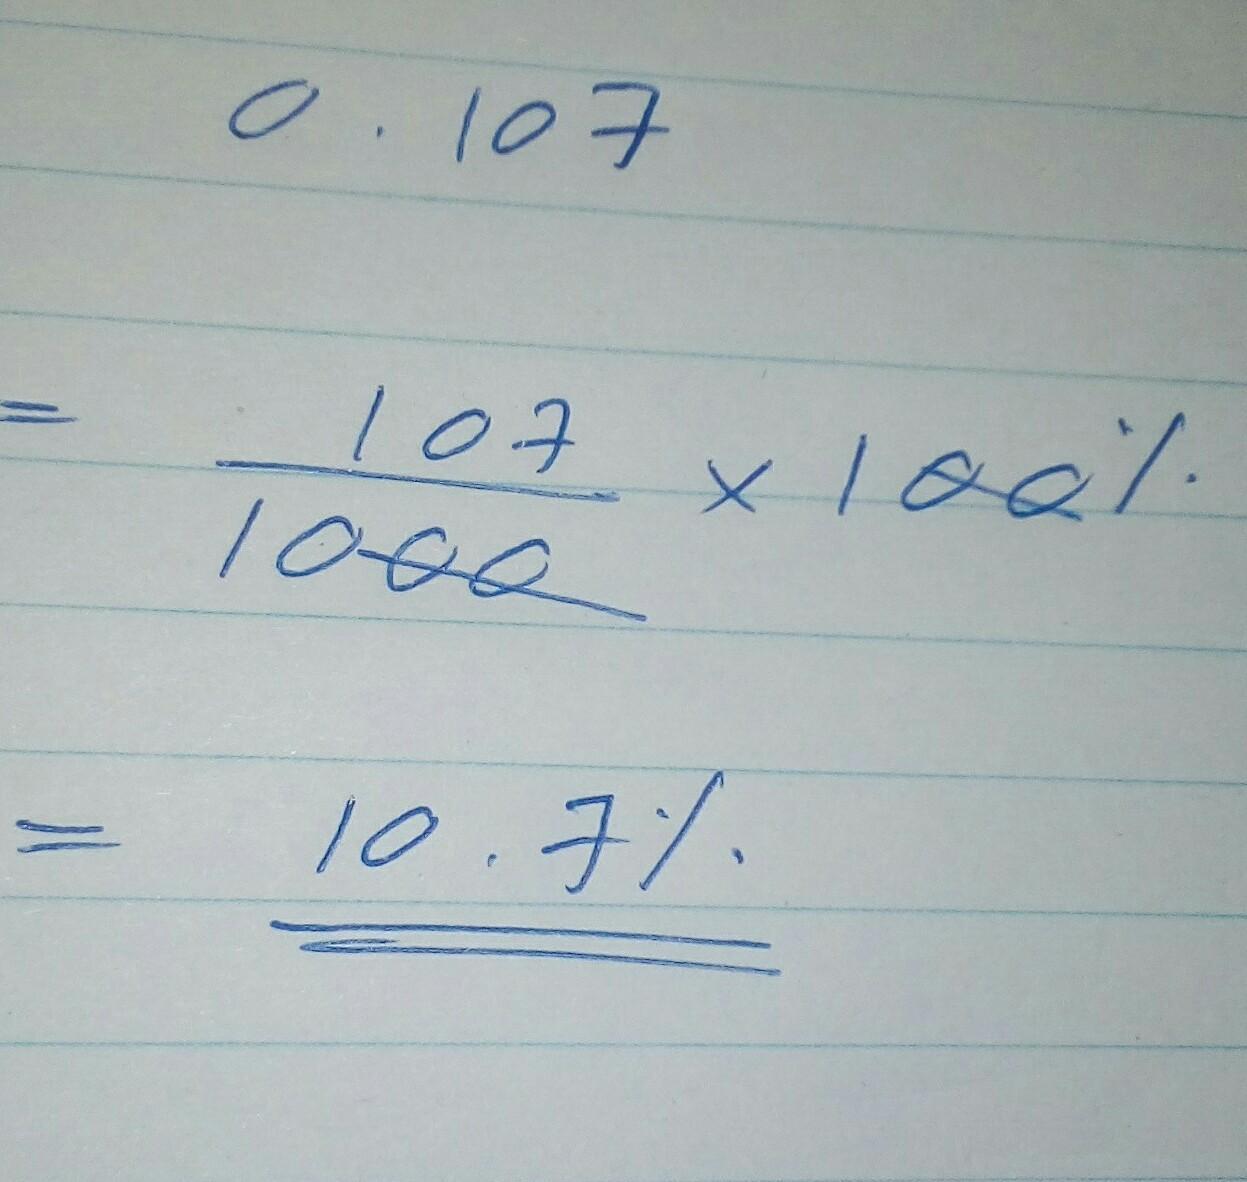 0.107
= 107/1000 × 100%
= 10.7%